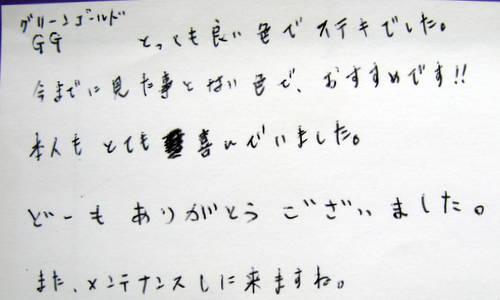 グリーンゴールド
GG とっても良い色でステキでした。
今までに見た事とない色で、おすすめです!!
本人もとても喜んでいました。
どーもありがとうございました。
また、メンテナンスしに来ますね。